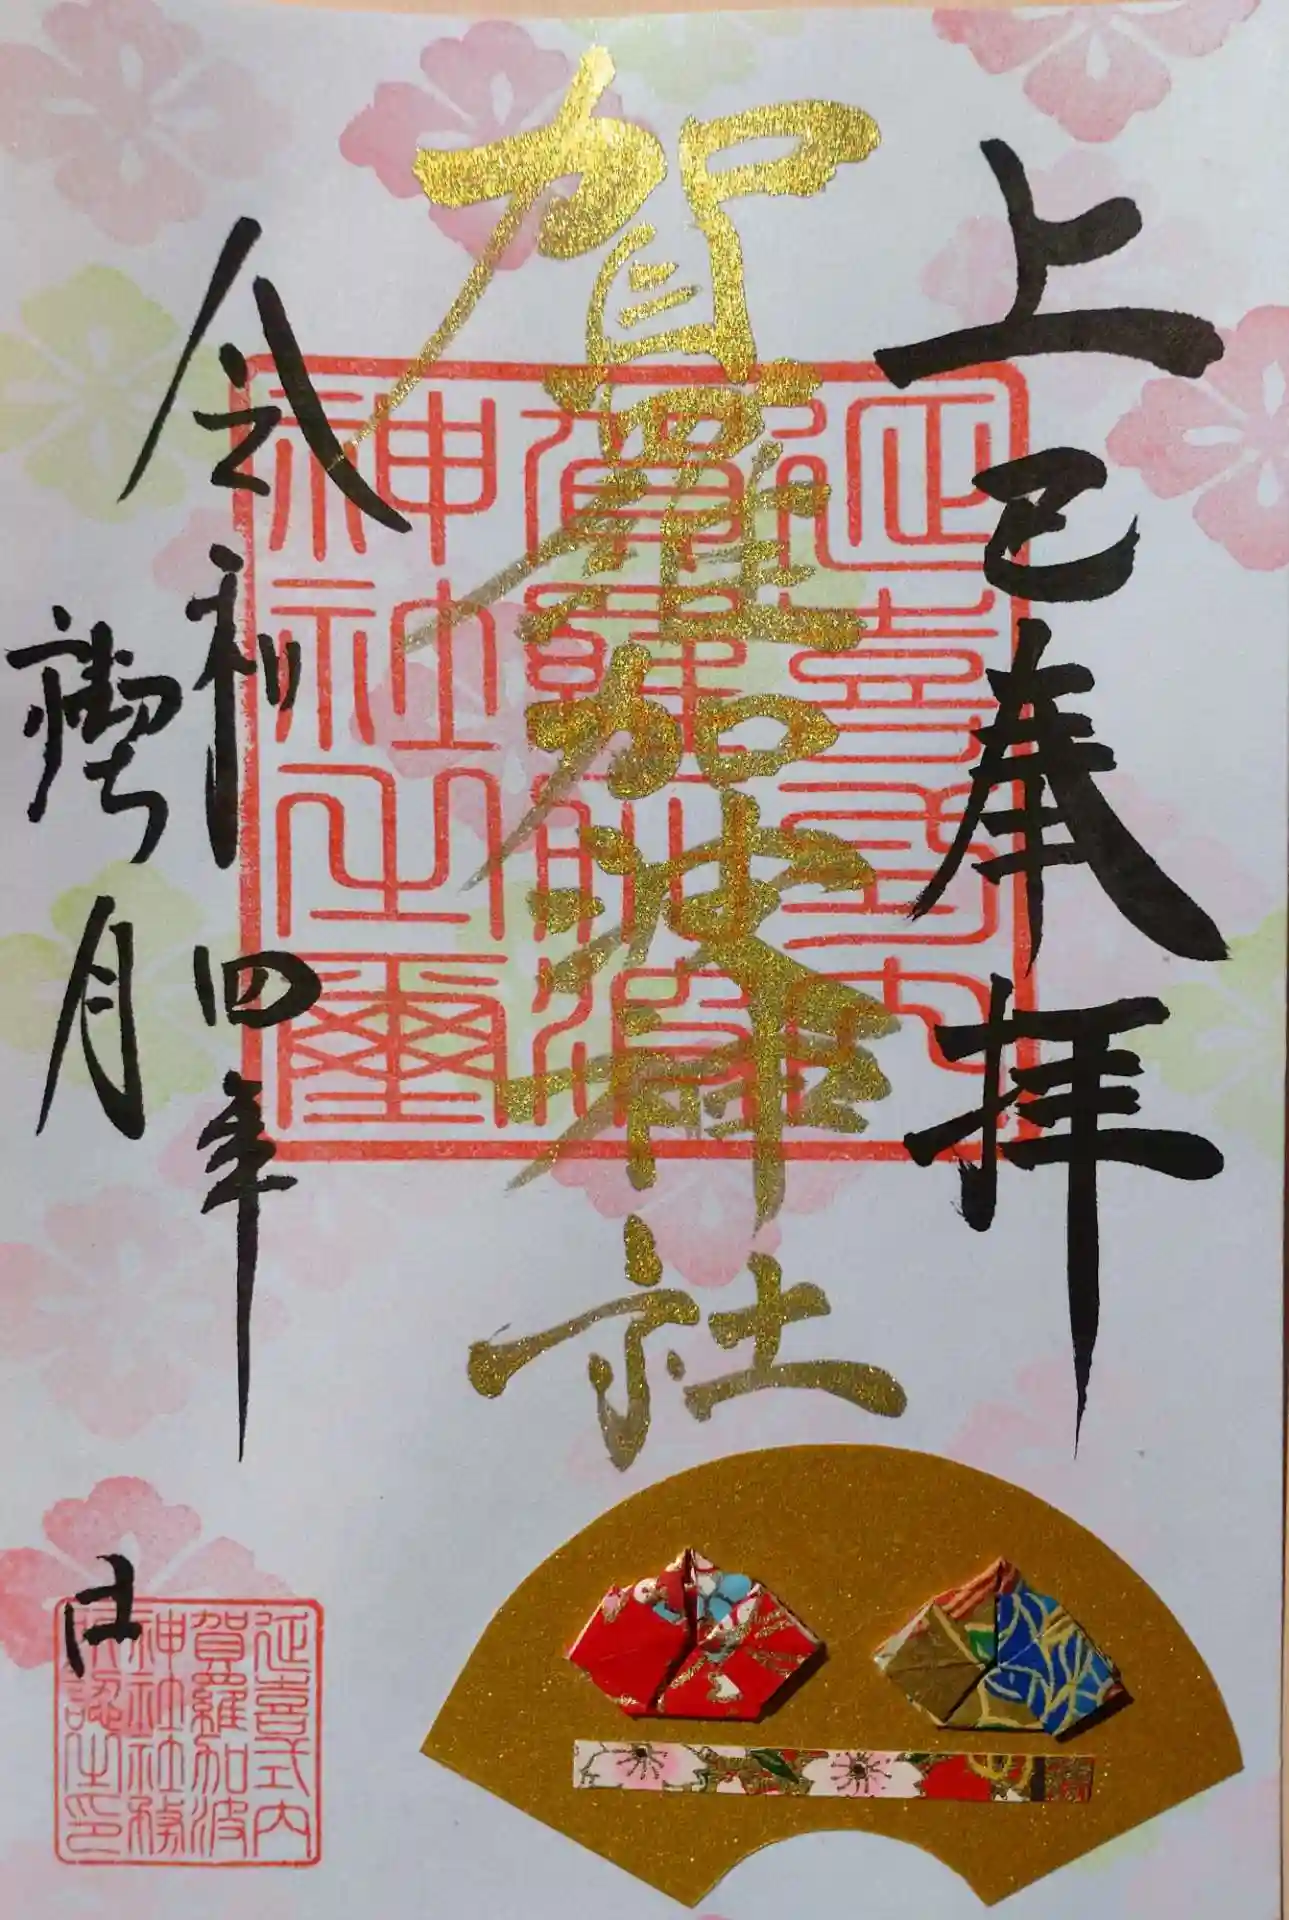 上巳奉拝
賀羅加波神社
延喜式内
賀羅加波
神社之璽
令和四年
禊月
延喜式内
賀羅加波
神社社務
之印